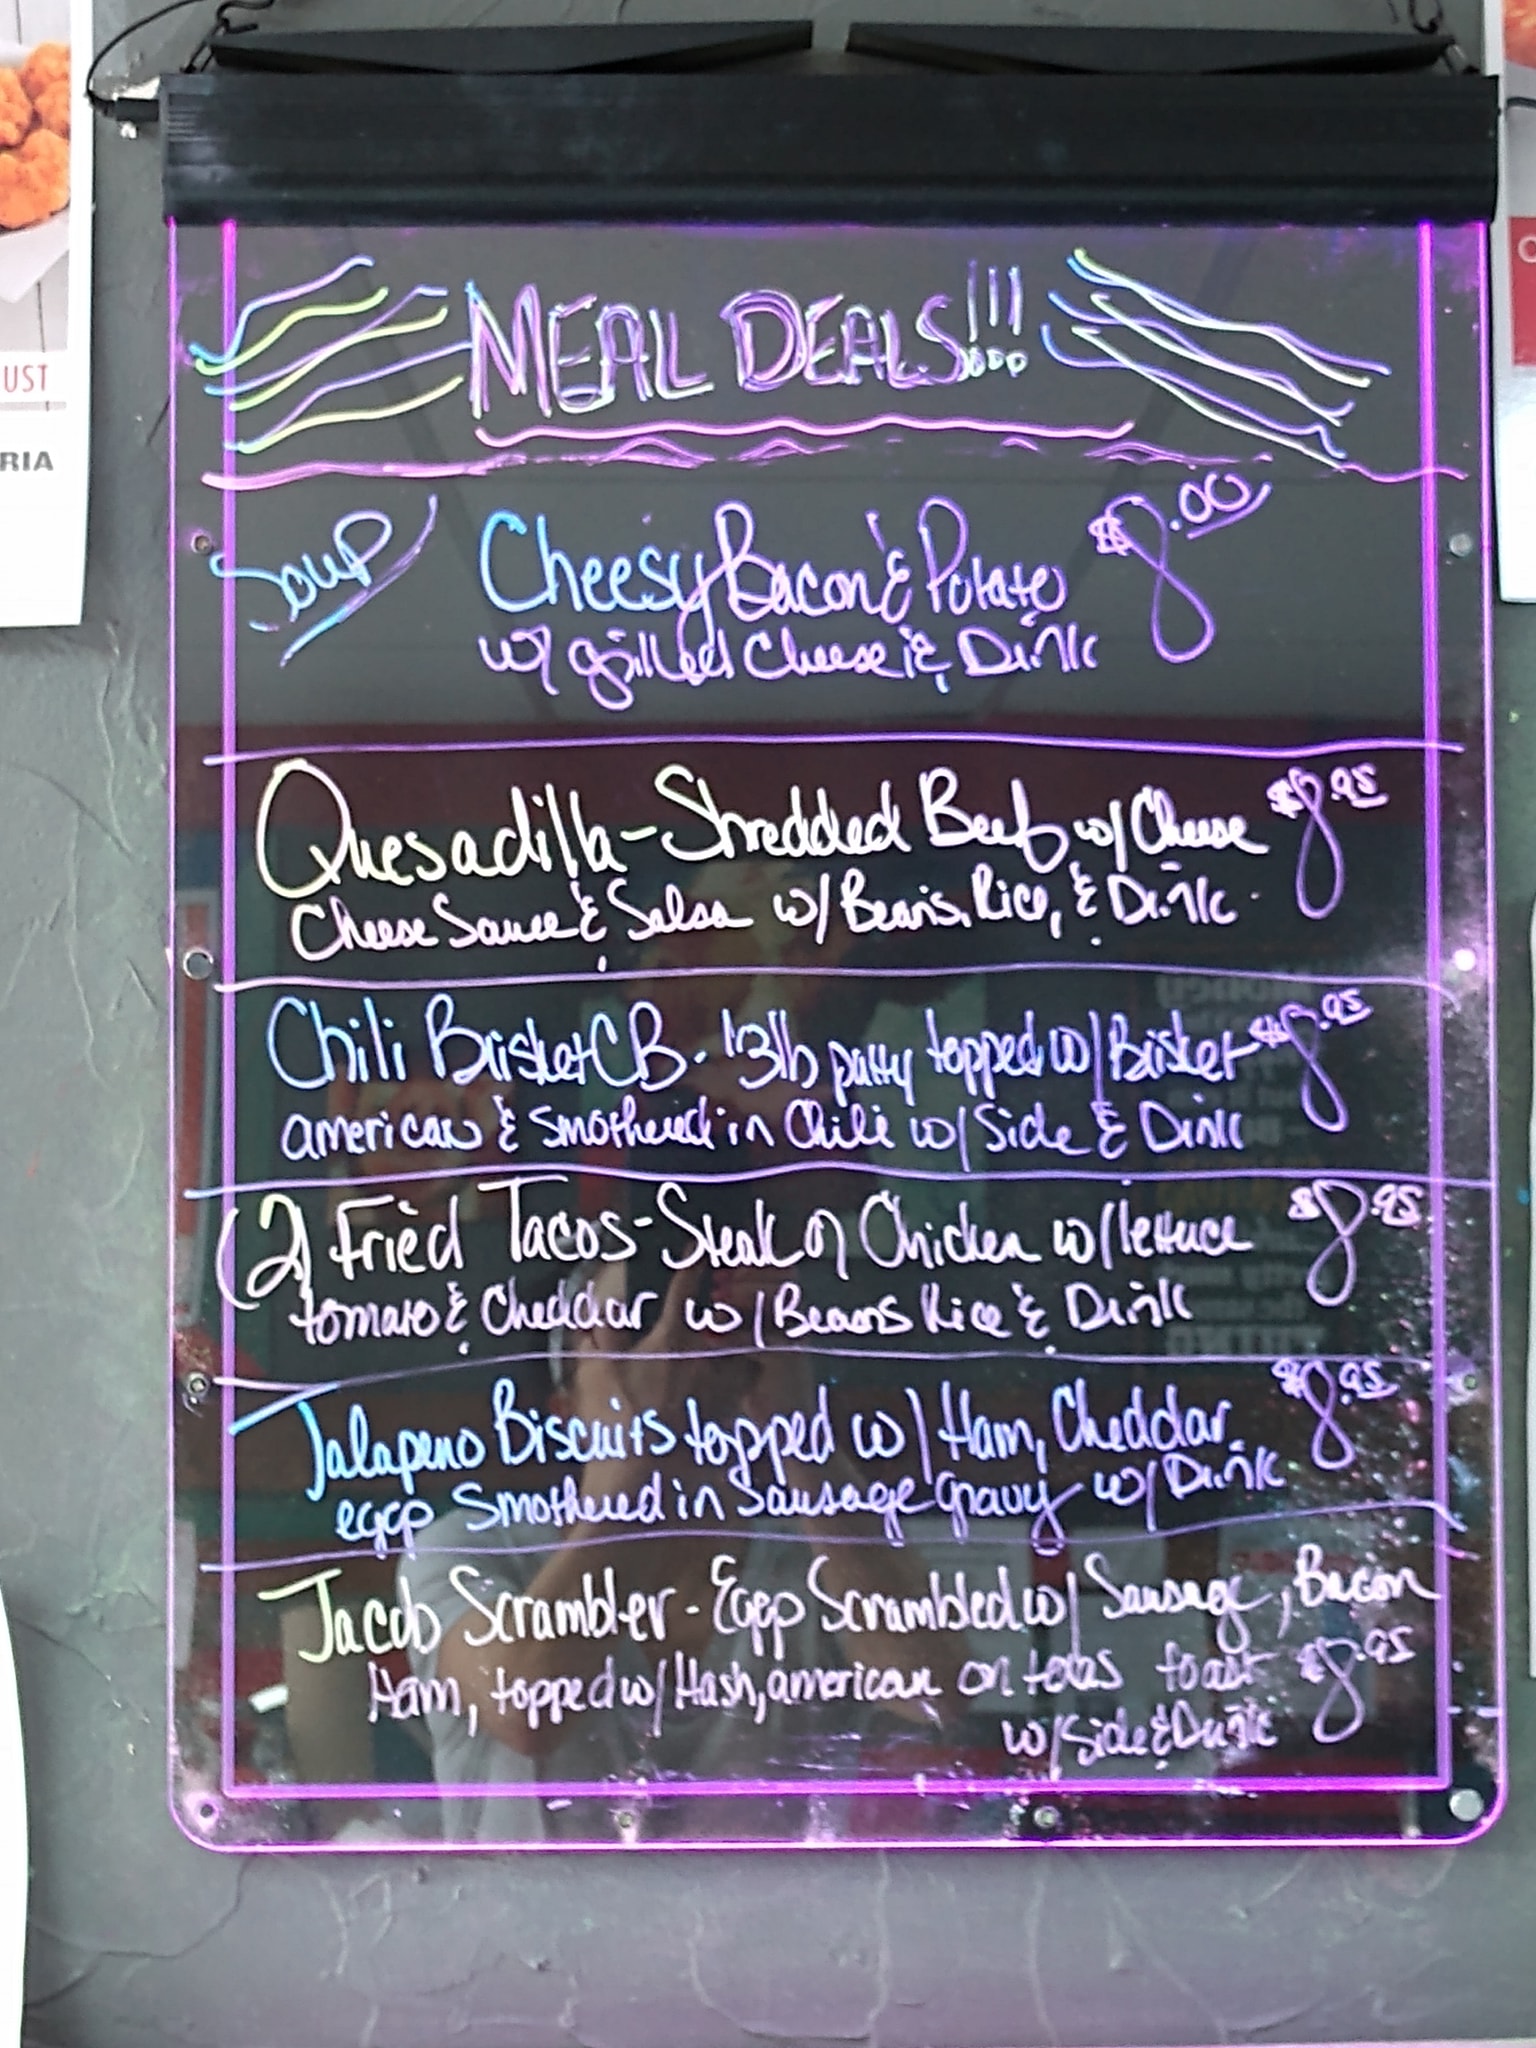 MEAL DEALS!!!
Soup Cheesy Bacon & Potato $8.00
w/ grilled Cheese & Drink
Quesadilla - Shredded Beef w/ Cheese $8.95
Cheese Sauce & Salsa w/ Beans, Rice, & Drink
Chili Brisket CB - 1/3lb patty topped w/ Brisket $8.95
american & smothered in Chili w/ Side & Drink
(2) Fried Tacos - Steak or Chicken w/ lettuce $8.95
tomato & Cheddar w/ Beans Rice & Drink
Jalapeno Biscuits topped w/ Ham, Cheddar $8.95
eggs Smothered in Sausage Gravy w/ Drink
Jacob Scrambler - Eggs Scrambled w/ Sausage, Bacon
Ham, topped w/ Hash, american on toast $8.95
w/ Side & Drink
UST
RIA